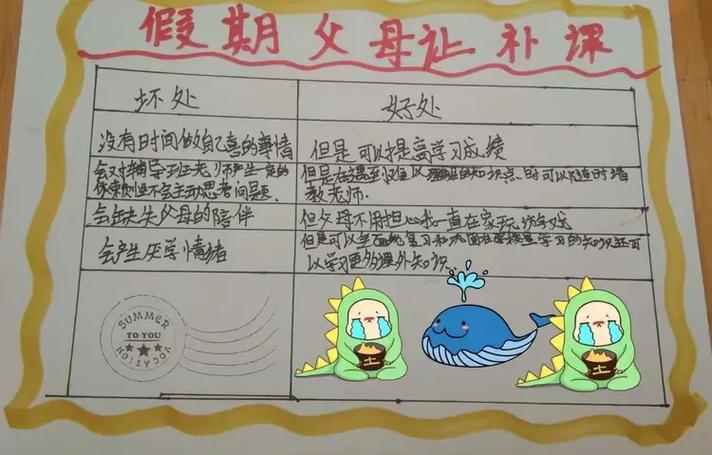 假期父母让补课
坏处
好处
没有时间做自己喜的事情
但是可以提高学习成绩
会对辅导班老师产生一定的
依赖则且不会主动思考问题.
但是在遇到难以理解的知识点时可以随时请
教老师.
会缺失父母的陪伴
但父母不用担心我一直在家玩游戏
会产生厌学情绪
但是可以学面地复习和巩固在学校里学习的知识还可
以学习更多的课外知识
SUMMER
TO·YOU
VOCATION
土
土